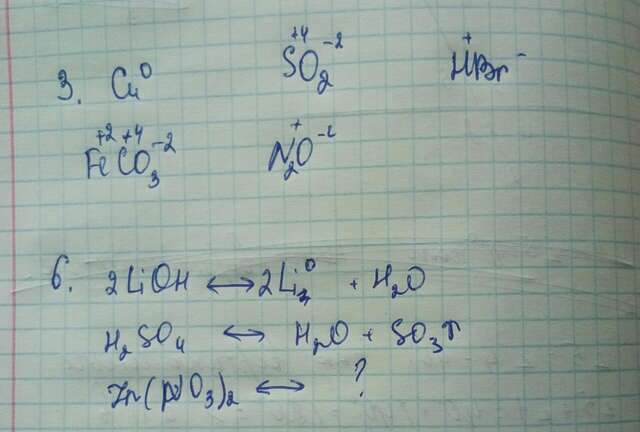 3. Cu⁰ S⁺⁴O₂⁻² H⁺Br⁻
Fe⁺²C⁺⁴O₃⁻² N₂⁺O⁻²
6. 2LiOH ↔ 2Li₂⁰ + H₂O
H₂SO₄ ↔ H₂O + SO₃↑
Zn(NO₃)₂ ↔ ?